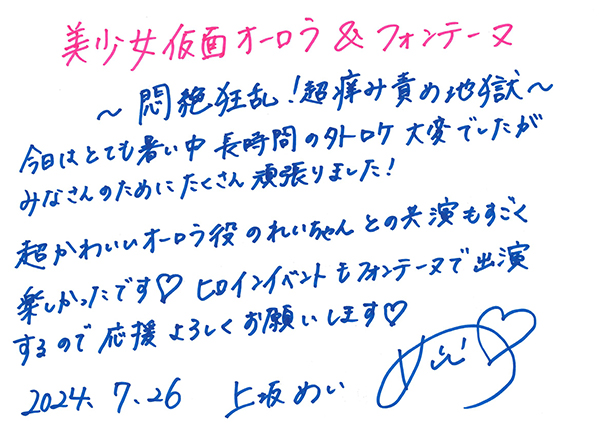 美少女仮面オーロラ & フォンテーヌ
～悶絶狂乱！超痒み責め地獄～
今日はとても暑い中 長時間の外ロケ 大変でしたが
みなさんのためにたくさん頑張りました！
超かわいいオーロラ役のれいちゃんとの共演もすごく
楽しかったです♡ ヒロインイベントもフォンテーヌで出演
するので応援よろしくお願いします♡
2024. 7. 26 上坂めい